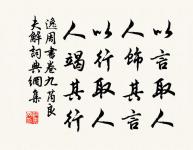 以言取人
人飾其言
以行取人
人竭其行
逸周書卷九芮良
夫解詞典網集